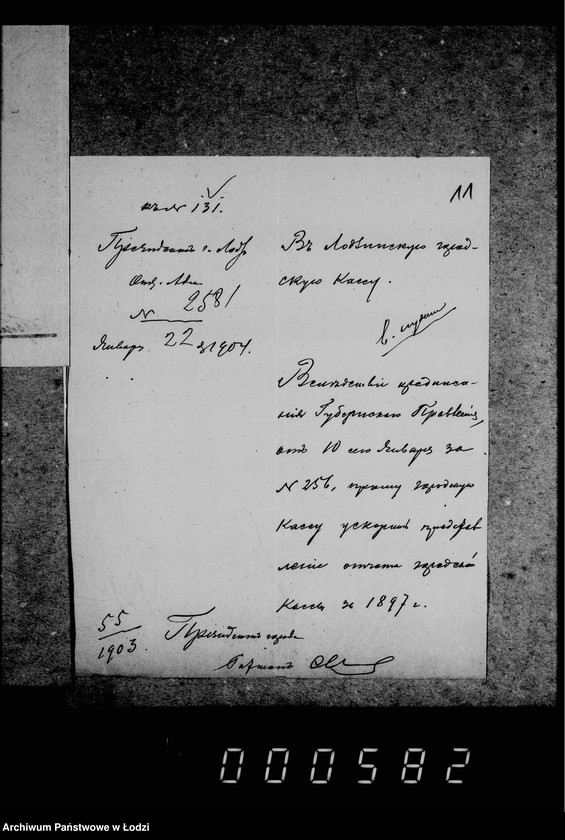 11
къ № 131.
Президентъ г. Лодзь
Отд. Адм.
№ 2581
Января 22 д. 1904 г.
Въ Лодзинскую город-
скую Кассу.
Вслѣдствіе предписа-
нія Губернскаго Правленія,
отъ 10 сего Января за
№ 256, прошу городскую
Кассу ускорить представ
леніе отчета городской
Кассы за 1897 г.
55
1903.
Президентъ города
000582
Archiwum Państwowe w Łodzi